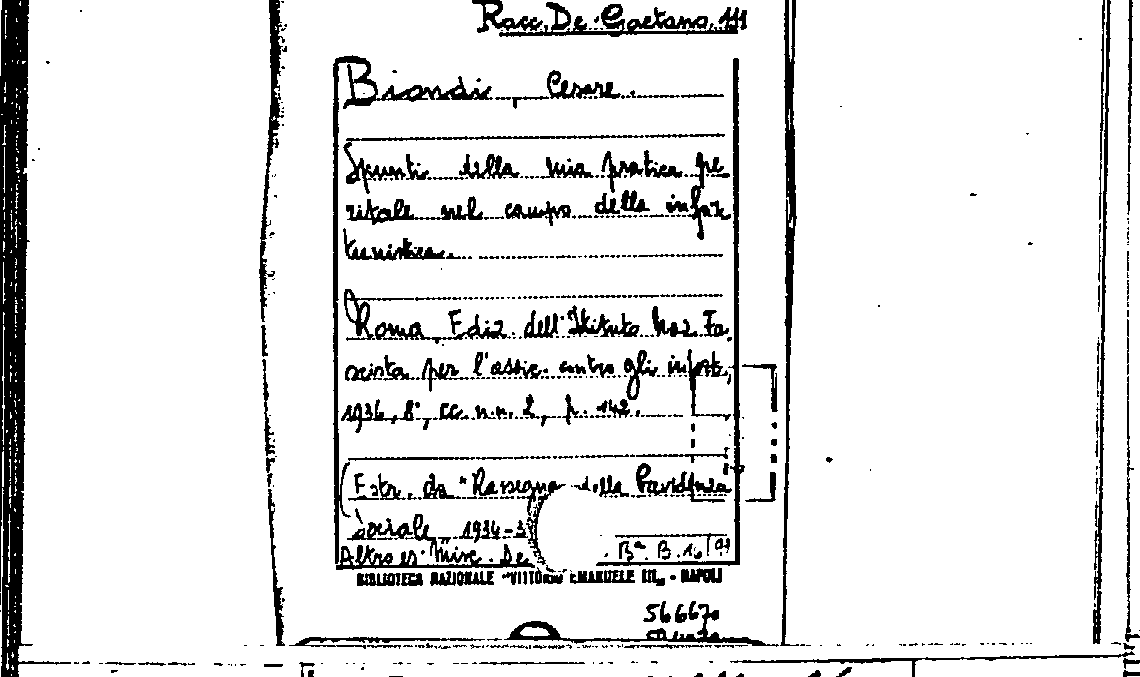 Racc. De Gaetano. III
Biondi, Cesare.
Spunti della mia pratica pe
ritale nel campo della infor
tunistica.
Roma, Ediz. dell'Istituto Naz. Fa,
scista per l'assic. contro gli infort,
1936, 8°, cc. n.n. 2, p. 142.
(Estr. da "Rassegna della Previdenza
Sociale" 1934-3
Altro es. Misc. De . Bª. B. 16
BIBLIOTECA NAZIONALE "VITTORIO EMANUELE III„ - NAPOLI
566670